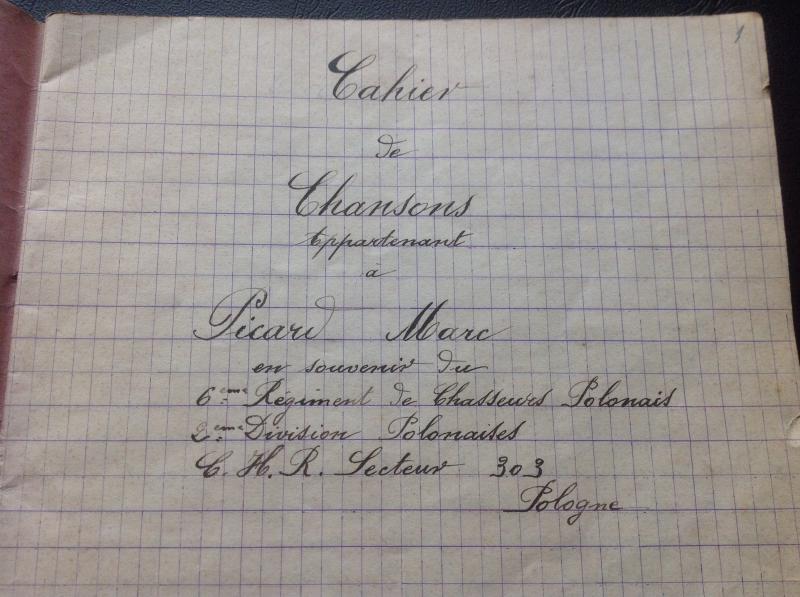 1
Cahier
de
Chansons
Appartenant
à
Picard Marc
en souvenir du
6ème Régiment de Chasseurs Polonais
2ème Division Polonaises
C. H. R. Secteur 303
Pologne